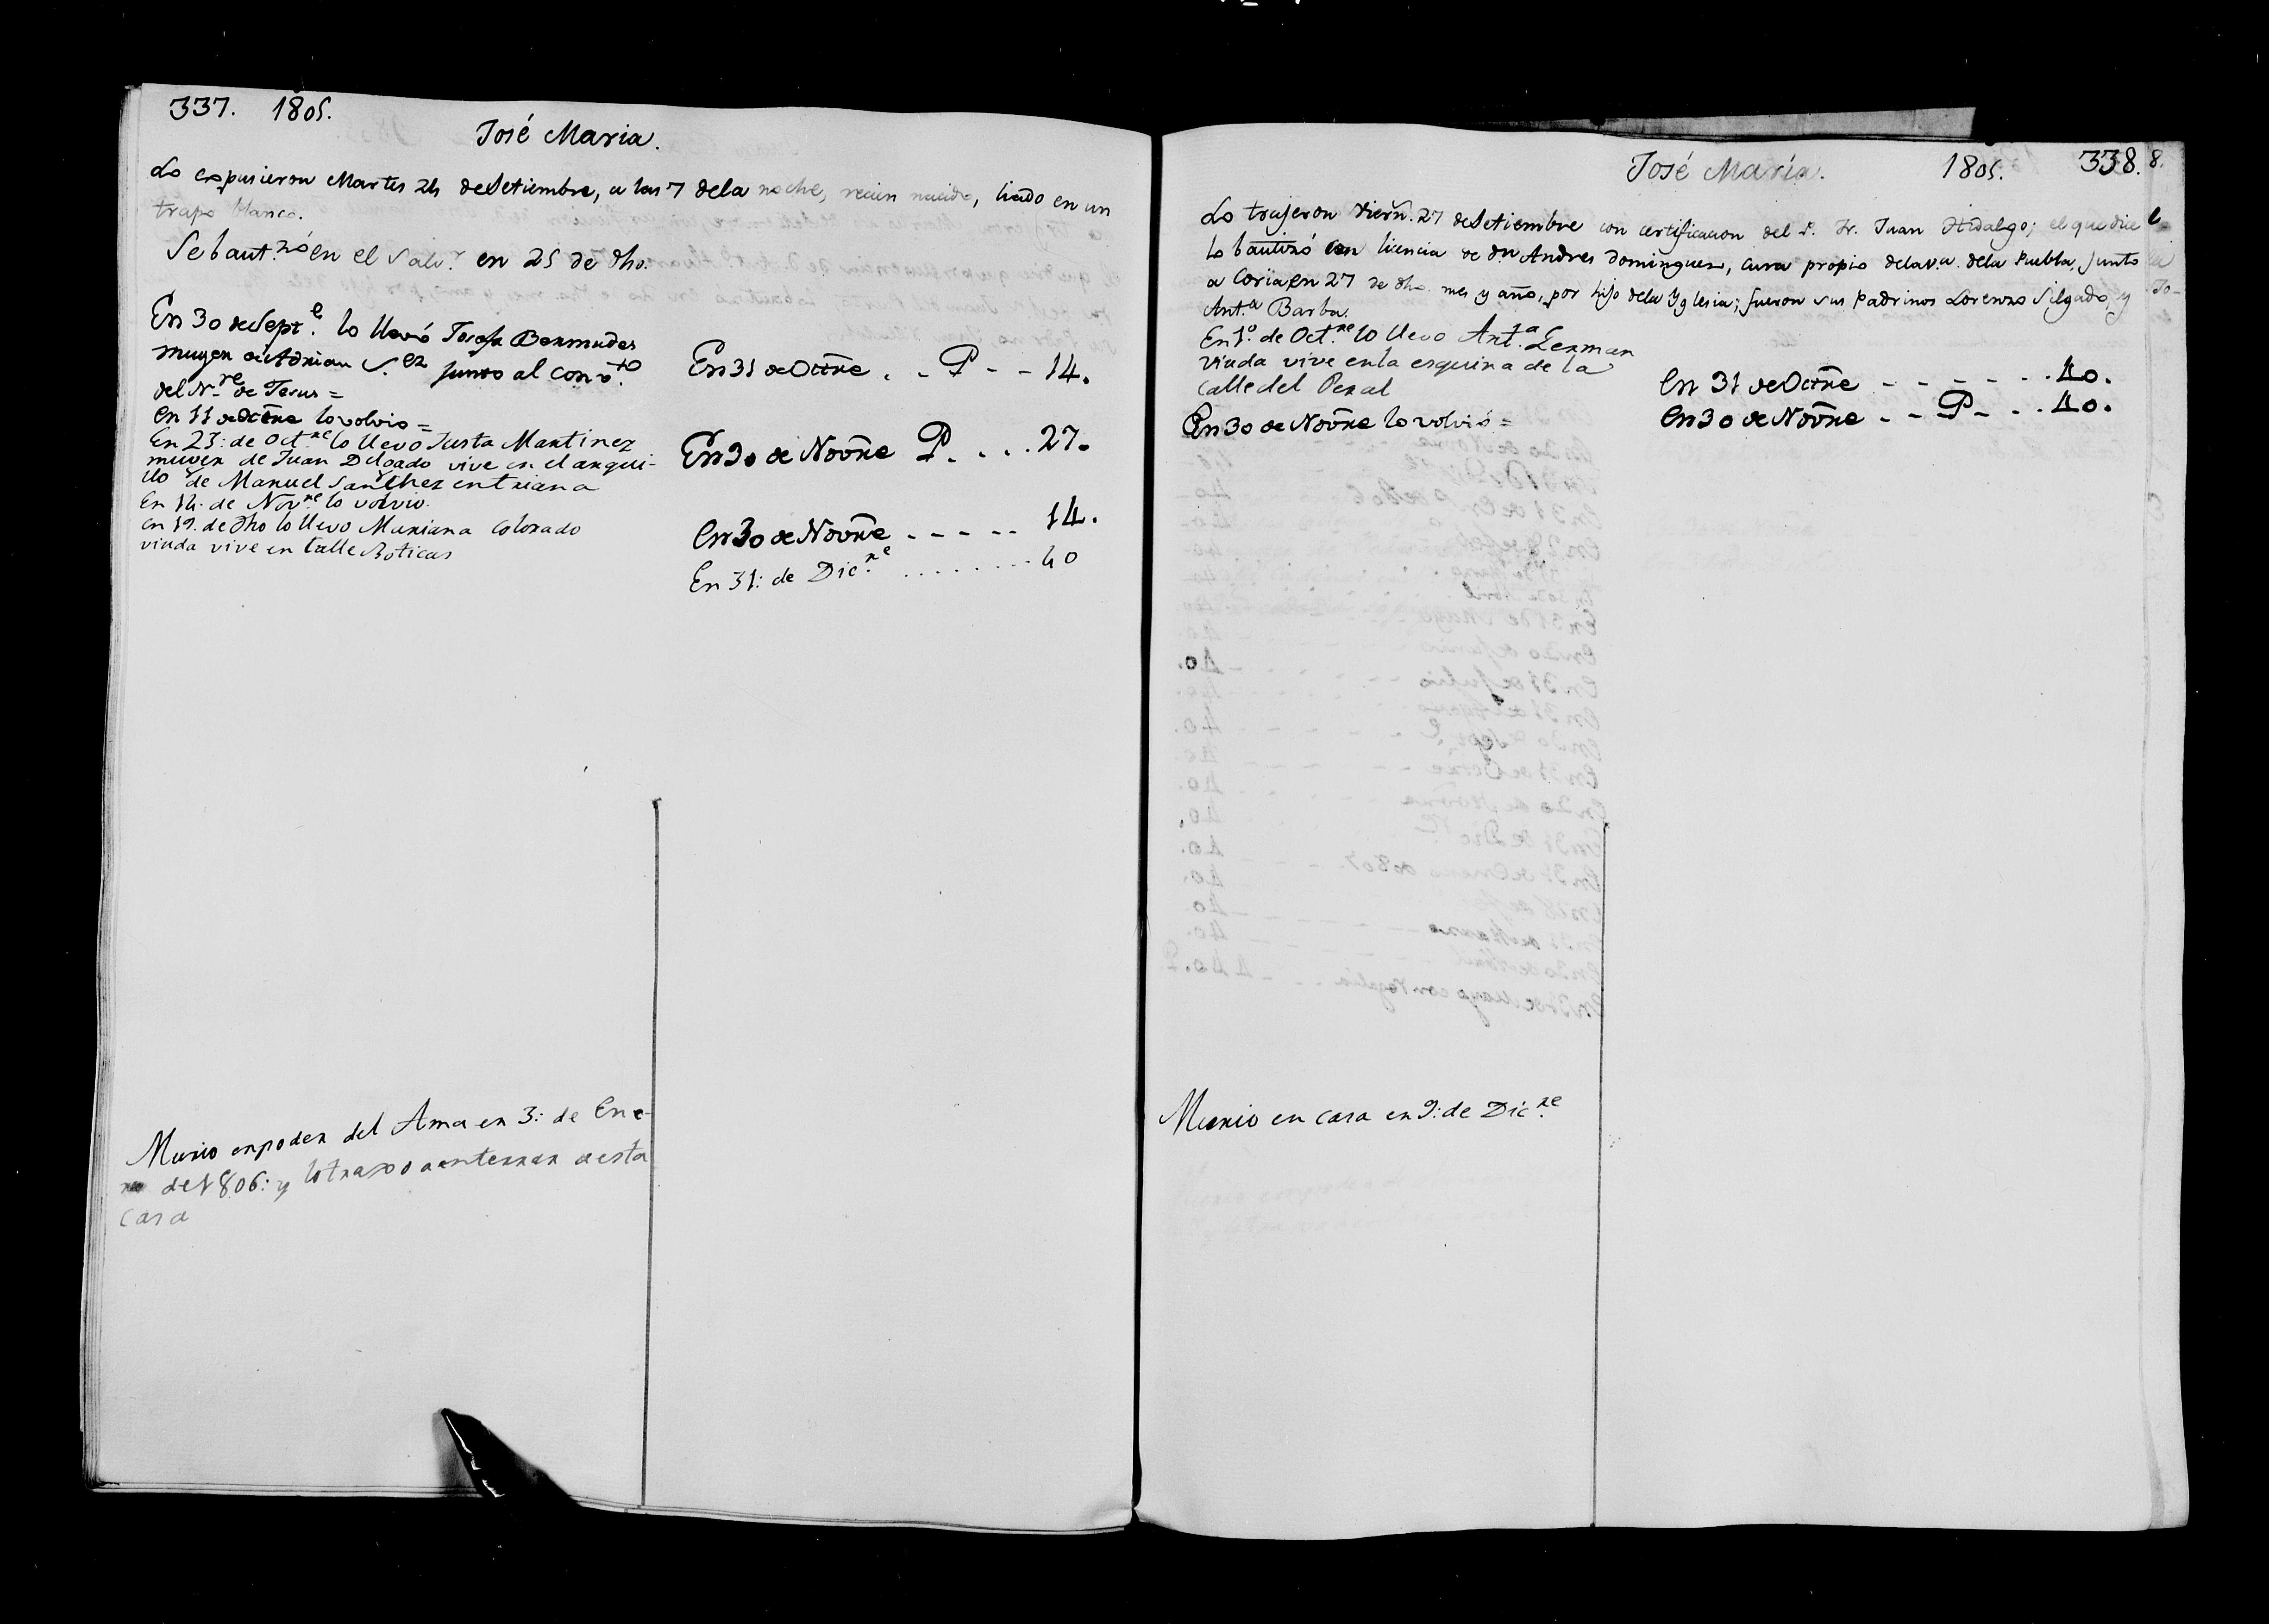 337. 1805.
José Maria.
Lo expusieron Martes 24 de Setiembre, a las 7 dela noche, recien nacido, liado en un
trapo blanco.
Se baut.zó en el Salv.r en 25 de dho.
En 30 de Sept.e lo llevó Josefa Bermudes
muger de Adrian S.ez junto al conv.to
del N.re de Jesus =
en 11 de Octre lo volvio =
En 23: de Oct.re lo llevo Justa Martinez
muger de Juan Delgado vive en el anqui-
llo de Manuel Sanchez en triana
En 14. de Nov.re lo volvio.
en 19. de dho lo llevo Mariana Colorado
viuda vive en Calle Boticas
En 31 de Octre . . P - - 14.
En 30 de Novre P. . . . 27.
en 30 de Novre - - - - - 14.
En 31: de Dic.re ........ 40
Murio en poder del Ama en 3: de Ene-
ro de 1806: y lo traxo a enterrar a esta
casa
José María. 1805. 338.
Lo trajeron Viern. 27 de Setiembre con certificacion del P. Fr. Juan Hidalgo; el que dice
lo bautizó con licencia de dn Andres Dominguez, cura propio dela v.a dela Puebla, junto
a Coria en 27 de dho mes y año, por hijo dela Yglesia; fueron sus Padrinos Lorenzo Silgado, y
Ant.a Barba.
En 1º de Oct.re lo llevo Ant.a Lerman
viuda vive en la esquina de la
Calle del Peral
En 30 de Novre lo volvió =
en 31 de Octre - - - - - - . 40.
en 30 de Novre . - - P - . . 40.
Murio en casa en 9: de Dic.re